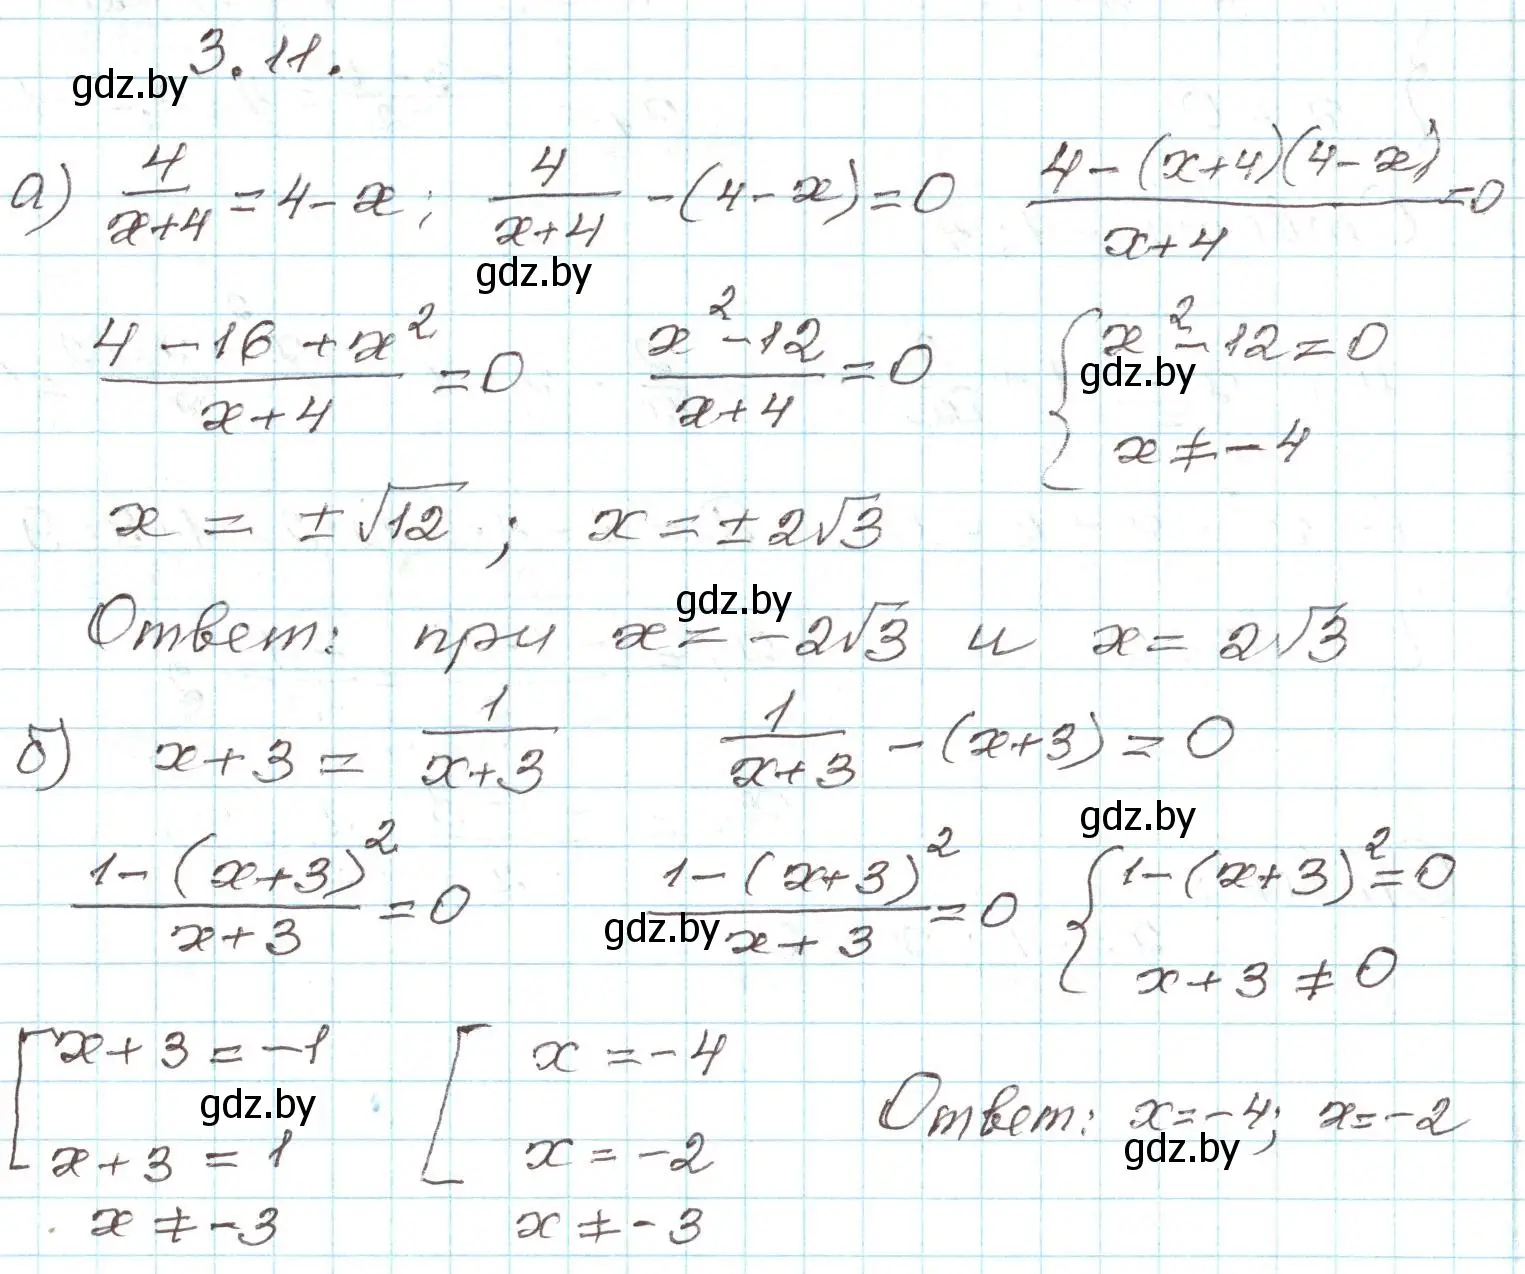 3.11.
gdz.by
а) 4/(x+4) = 4-x; 4/(x+4) -(4-x)=0 (4-(x+4)(4-x))/(x+4) =0
gdz.by
(4-16+x²)/(x+4) =0 (x²-12)/(x+4) =0 { x²-12=0
gdz.by
x≠-4
x = ±√12; x=±2√3
gdz.by
Ответ: при x=-2√3 и x= 2√3
б) x+3= 1/(x+3) 1/(x+3) -(x+3)=0
gdz.by
(1-(x+3)²)/(x+3) =0 (1-(x+3)²)/(x+3) =0 { 1-(x+3)²=0
gdz.by
x+3≠0
[ x+3=-1 [ x=-4
gdz.by
Ответ: x=-4; x=-2
gdz.by
x+3=1 x=-2
x≠-3 x≠-3